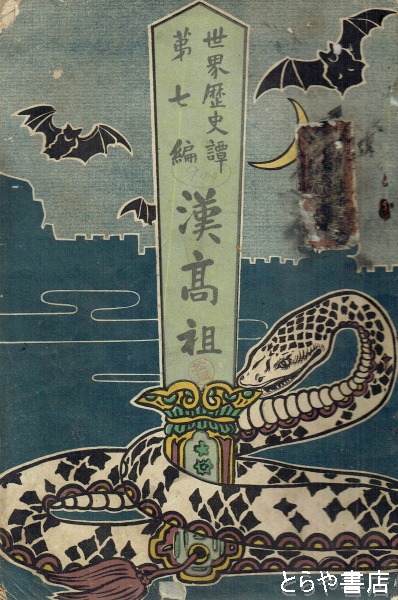 世界歴史譚
第七編
漢高祖
とらや書店